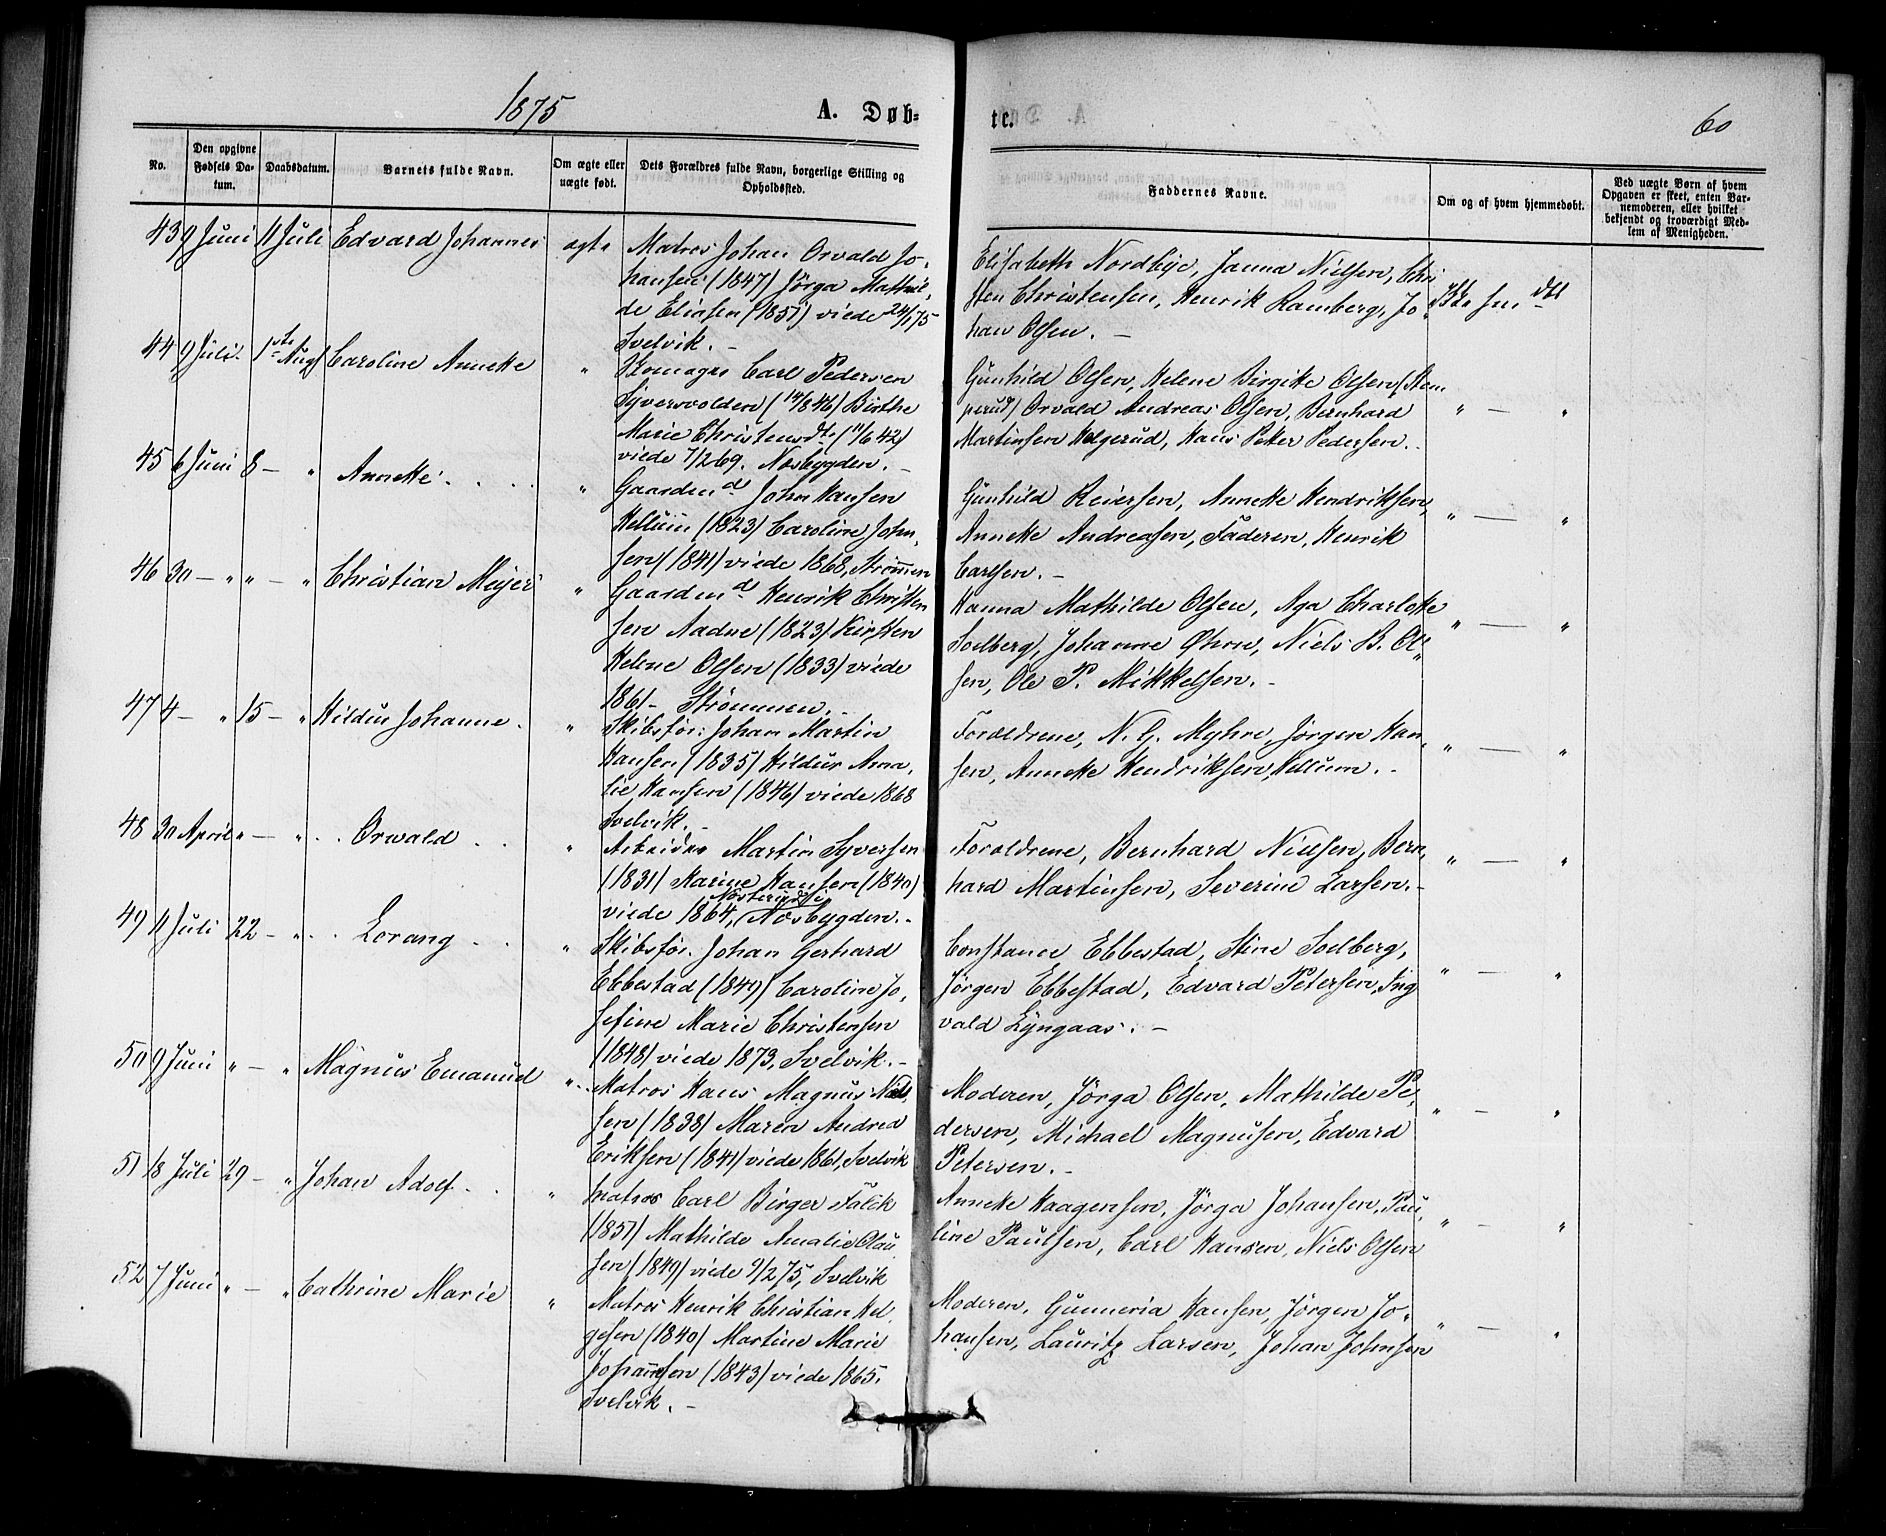 1875
A. Døb-
te.
60
No.
Den opgivne
Fødsels Da-
tum.
Daabsdatum.
Barnets fulde Navn.
Om ægte eller
uægte født.
Dets Forældres fulde Navn, borgerlige Stilling og
Opholdssted.
Faddernes Navne.
Om og af hvem hjemmedøbt.
Ved uægte Børn af hvem
Opgaven er skeet, enten Bar-
nemoderen, eller hvilket
bekjendt og troværdigt Med-
lem af Menigheden.
43 9 Juni 11 Juli Edvard Johannes ægte
Matros Johan Orvald Jo-
hansen (1847) Jørga Mathil-
de Eliasen (1851) viede 24/1 75
Svelvik. -
Elisabeth Nordbye, Janna Nielsen, Chri
sten Christensen, Henrik Ramberg, Jo-
han Olsen. -
44 9 Juli. 1ste Aug Caroline Annette "
Skomager Carl Pedersen
Syversvolden (19/8 46) Birthe
Marie Christensdtr (11/6 42)
viede 7/2 69. Nesbygden. -
Gunhild Olsen, Helene Birgitte Olsen (Stem
perud) Orvald Andreas Olsen, Bernhard
Martinsen Helgerud, Hans Peter Pedersen. -
" — "
45 6 Juni 8 - " Annette. . . . "
Gaardmd John Hansen
Hellum (1823) Caroline John-
sen (1841) viede 1868, Strømmen
Gunhild Reiersen, Annette Hendriksen,
Annette Andreasen, Faderen, Henrik
Carlsen. -
" — "
46 30 - " " - " Christian Meyer "
Gaardmd Henrik Christen
sen Aadne (1823) Kirsten
Helene Olsen (1833) viede
1861 - Strømmen. -
Hanna Mathilde Olsen, Aga Charlotte
Soelberg, Johanne Øhrn, Niels B. Ol-
sen, Ole P. Mikkelsen. -
" — "
47 4 - " 15 - " Hildur Johanne. "
Skibsfør: Johan Martin
Hansen (1835) Hildur Ama-
lie Hansen (1846) viede 1868
Svelvik. -
Forældrene, N. G. Myhre, Jørgen Han-
sen, Annette Hendriksen, Hellum. -
" — "
48 30 April " — " . . Orvald . . "
Arbeider Martin Syversen
(1831) Karine Hansen (1840)
viede 1864, Nesbygden. -
Forældrene, Bernhard Nielsen, Bern-
hard Martinsen, Severine Larsen. -
" — "
49 11 Juli 22 - " . . Lorang . . "
Skibsfør. Johan Gerhard
Ebbestad (1849) Caroline Jo-
sefine Marie Christensen
(1848) viede 1873, Svelvik. -
Constance Ebbestad, Stine Soelberg,
Jørgen Ebbestad, Edvard Petersen, Ing
vald Lyngaas. -
" — "
50 9 Juni " — " Magnus Emanuel "
Matros Hans Magnus Niel-
sen (1838) Maren Andrea
Eriksen (1841) viede 1861, Svelvik
Moderen, Jørga Olsen, Mathilde Pe-
dersen, Michael Magnusen, Edvard
Petersen. -
" — "
51 18 Juli 29 - " Johan Adolf . . "
Matros Carl Birger Falck
(1851) Mathilde Amalie Olau
sen (1849) viede 9/2 75, Svelvik
Annette Haagensen, Jørga Johansen, Pau-
line Paulsen, Carl Hansen, Niels Olsen
" — "
52 7 Juni " — " Cathrine Marie "
Matros Henrik Christian Hel-
gesen (1840) Martine Marie
Johannsen (1843) viede 1865.
Svelvik. -
Moderen, Gunneria Hansen, Jørgen Jo-
hansen, Lauritz Larsen, Johan Johnsen
" — "